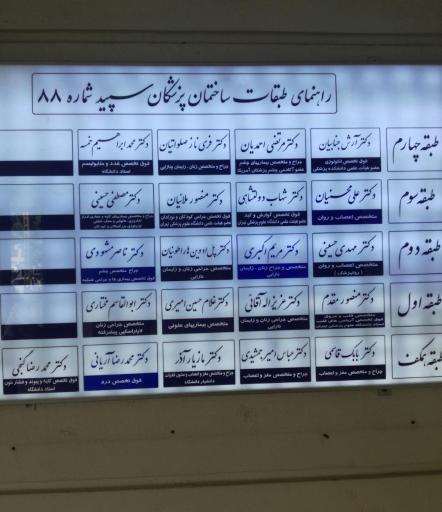 راهنمای طبقات ساختمان پزشکان سپید شماره ۸۸
طبقه چهارم
دکتر آرش خجابیان
فوق تخصص انکولوژی
عضو هیأت علمی دانشکده پزشکی
دکتر مرتضی احمدیان
جراح و متخصص بیماریهای چشم
عضو آکادمی چشم پزشکی آمریکا
دکتر فری ناز صلواتیان
جراح و متخصص زنان ـ زایمان ونازایی
دکتر محمد ابراهیم خمسه
فوق تخصص غدد و متابولیسم
استاد دانشگاه
طبقه سوم
دکتر علی محسنیان
متخصص اعصاب و روان
دکتر شهاب دولتشاهی
فوق تخصص گوارش و کبد
عضو هیئت علمی دانشگاه علوم پزشکی تهران
دکتر منصور ملائیان
فوق تخصص جراحی کودکان و نوزادان
عضو هیئت علمی دانشگاه علوم پزشکی تهران
دکتر مصطفی حسینی
طبقه دوم
دکتر مهدی حسینی
متخصص اعصاب و روان
(روانپزشک)
دکتر مریم اکبری
متخصص و جراح زنان ـ زایمان
نازایی
دکتر ژیل اودین هاراطونیان
متخصص جراحی زنان و زایمان
نازایی
دکتر ناصر مشهودی
جراح متخصص چشم
طبقه اول
دکتر منصور مقدم
متخصص قلب و عروق
دکتر عزیزاله آقائی
متخصص جراحی زنان و زایمان
نازایی
دکتر غلامحسین امیری
متخصص بیماریهای عفونی
دکتر ابوالقاسم مختاری
متخصص جراحی زنان
لاپاراسکپی پیشرفته
طبقه همکف
دکتر بابک قامی
جراح و متخصص مغز و اعصاب
دکتر عباس امیرجمشیدی
جراح و متخصص مغز و اعصاب
دکتر مازیار آذر
جراح و متخصص مغز و اعصاب و ستون فقرات
دانشیار دانشگاه
دکتر محمدرضا آریانی
فوق تخصص درد
دکتر محمدرضا گنجی
فوق تخصص کلیه و پیوند و فشار خون
استاد دانشگاه